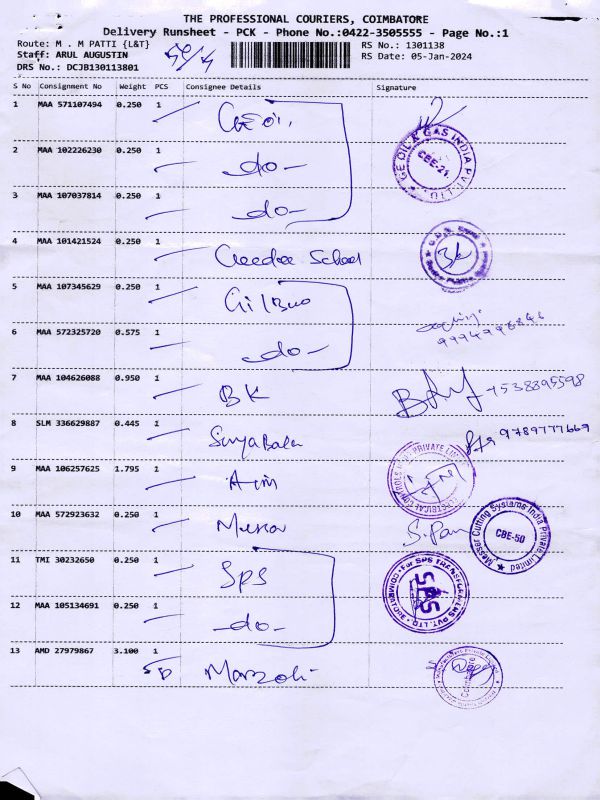 THE PROFESSIONAL COURIERS, COIMBATORE
Delivery Runsheet - PCK - Phone No.:0422-3505555 - Page No.:1
Route: M . M PATTI {L&T}
RS No.: 1301138
Staff: ARUL AUGUSTIN
RS Date: 05-Jan-2024
DRS No.: DCJB130113801
S No Consignment No Weight PCS Consignee Details Signature
1 MAA 571107494 0.250 1 GE Oil,
2 MAA 102226230 0.250 1 -do-
GE OIL & GAS INDIA PVT. LTD.
CBE-21
3 MAA 107037814 0.250 1 -do-
4 MAA 101421524 0.250 1 School
5 MAA 107345629 0.250 1
6 MAA 572325720 0.575 1 -do-
7 MAA 104626088 0.950 1 BK
8 SLM 336629887 0.445 1 9789777669
9 MAA 106257625 1.795 1
10 MAA 572923632 0.250 1 S. Pan
Messer Cutting Systems India Private Limited
CBE-50
11 TMI 30232650 0.250 1 SPS
For SPS TRANSFORMERS PVT. LTD.
SPS
COIMBATORE
12 MAA 105134691 0.250 1 -do-
13 AMD 27979867 3.100 1